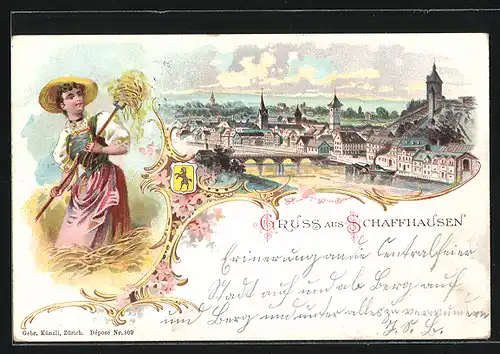 GRUSS AUS SCHAFFHAUSEN
Erinerung an die Centralfeier
Stadt auf und ab Berg auf
und Berg und unter alles zu
Gebr. Künzli, Zürich. Déposé Nr. 809